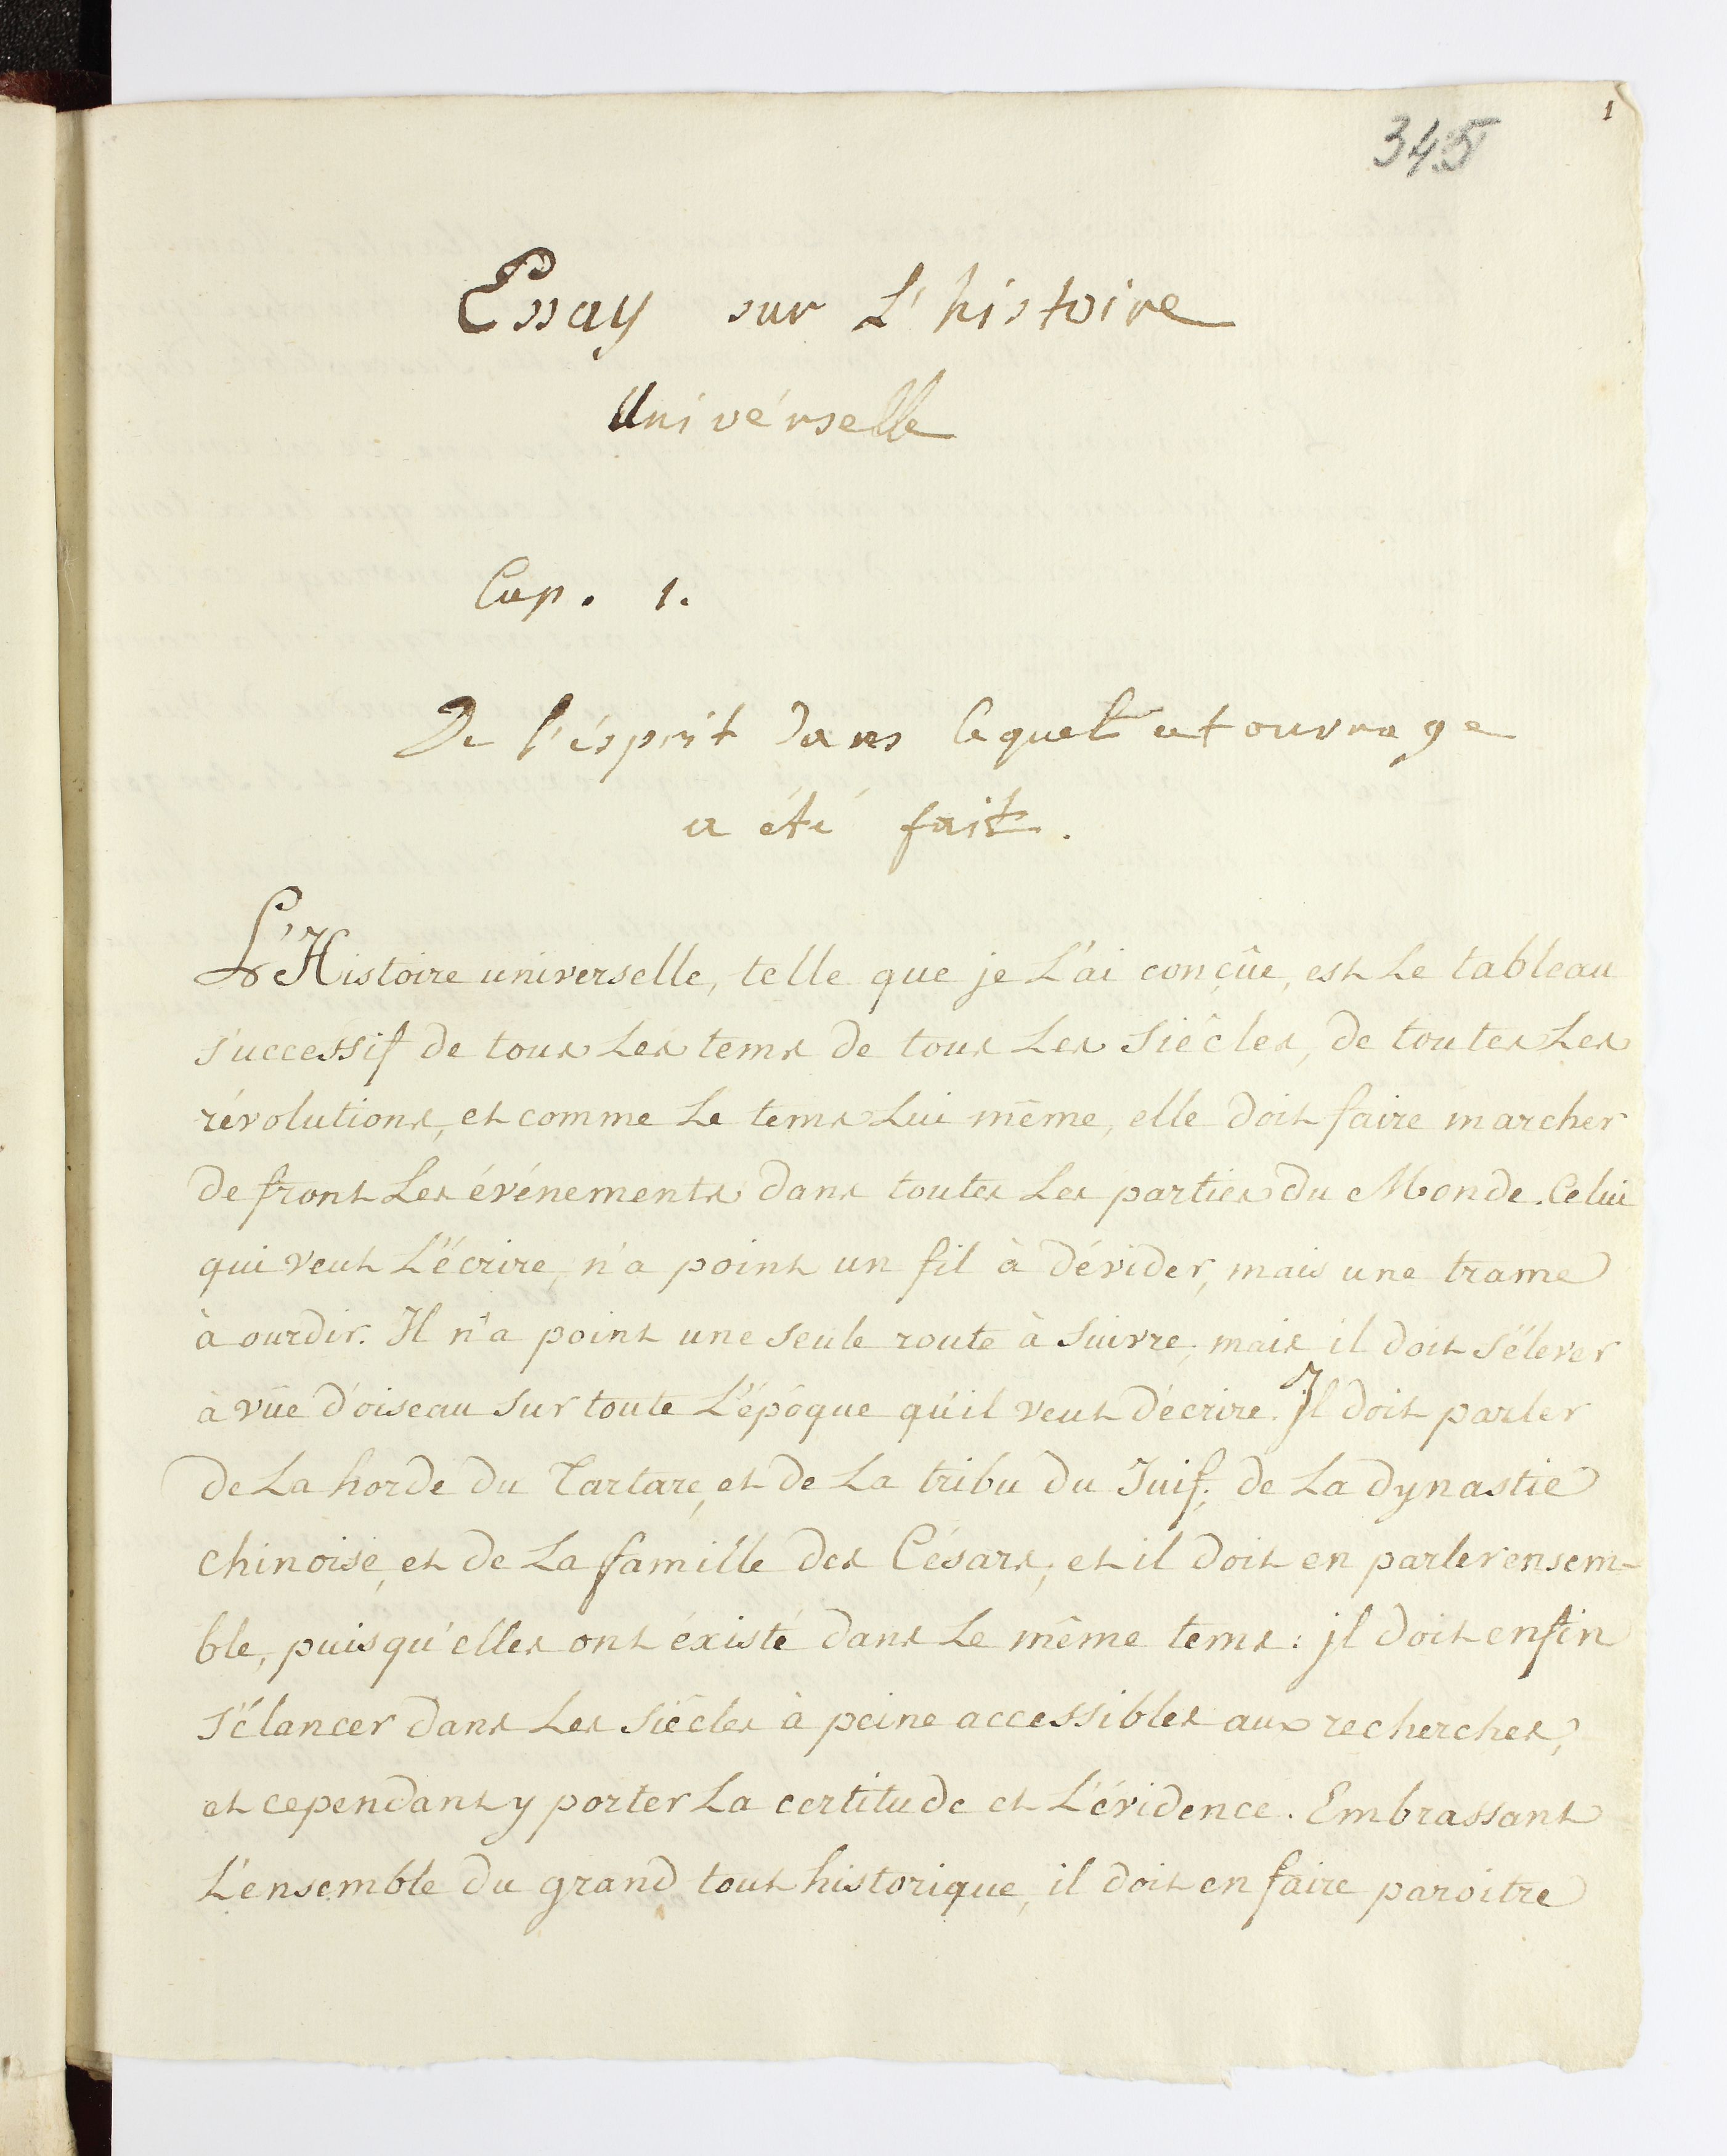 1
345
Essay sur L'histoire
Univérselle
Cap. 1.
De l'ésprit dans lequel cet ouvrage
a été fait.
L'Histoire universelle, telle que je L'ai conçûe, est Le tableau
successif de tous Les tems de tous Les Siècles, de toutes Les
révolutions, et comme Le tems Lui même, elle doit faire marcher
de front Les événements dans toutes Les parties du Monde. Celui
qui veut L'écrire, n'a point un fil à dévider, mais une trame
à ourdir. Il n'a point une Seule route à Suivre, mais il doit s'élever
à vûe d'oiseau Sur toute L'époque qu'il veut décrire. Il doit parler
de La horde du Tartare, et de La tribu du Juif; de La dynastie
chinoise, et de La famille des Césars; et il doit en parler ensem-
ble, puisqu'elles ont éxisté dans Le même tems: jl doit enfin
s'élancer dans Les Siècles à peine accessibles aux recherches,
et cependant y porter La certitude et L'évidence. Embrassant
L'ensemble du grand tout historique, il doit en faire paroitre